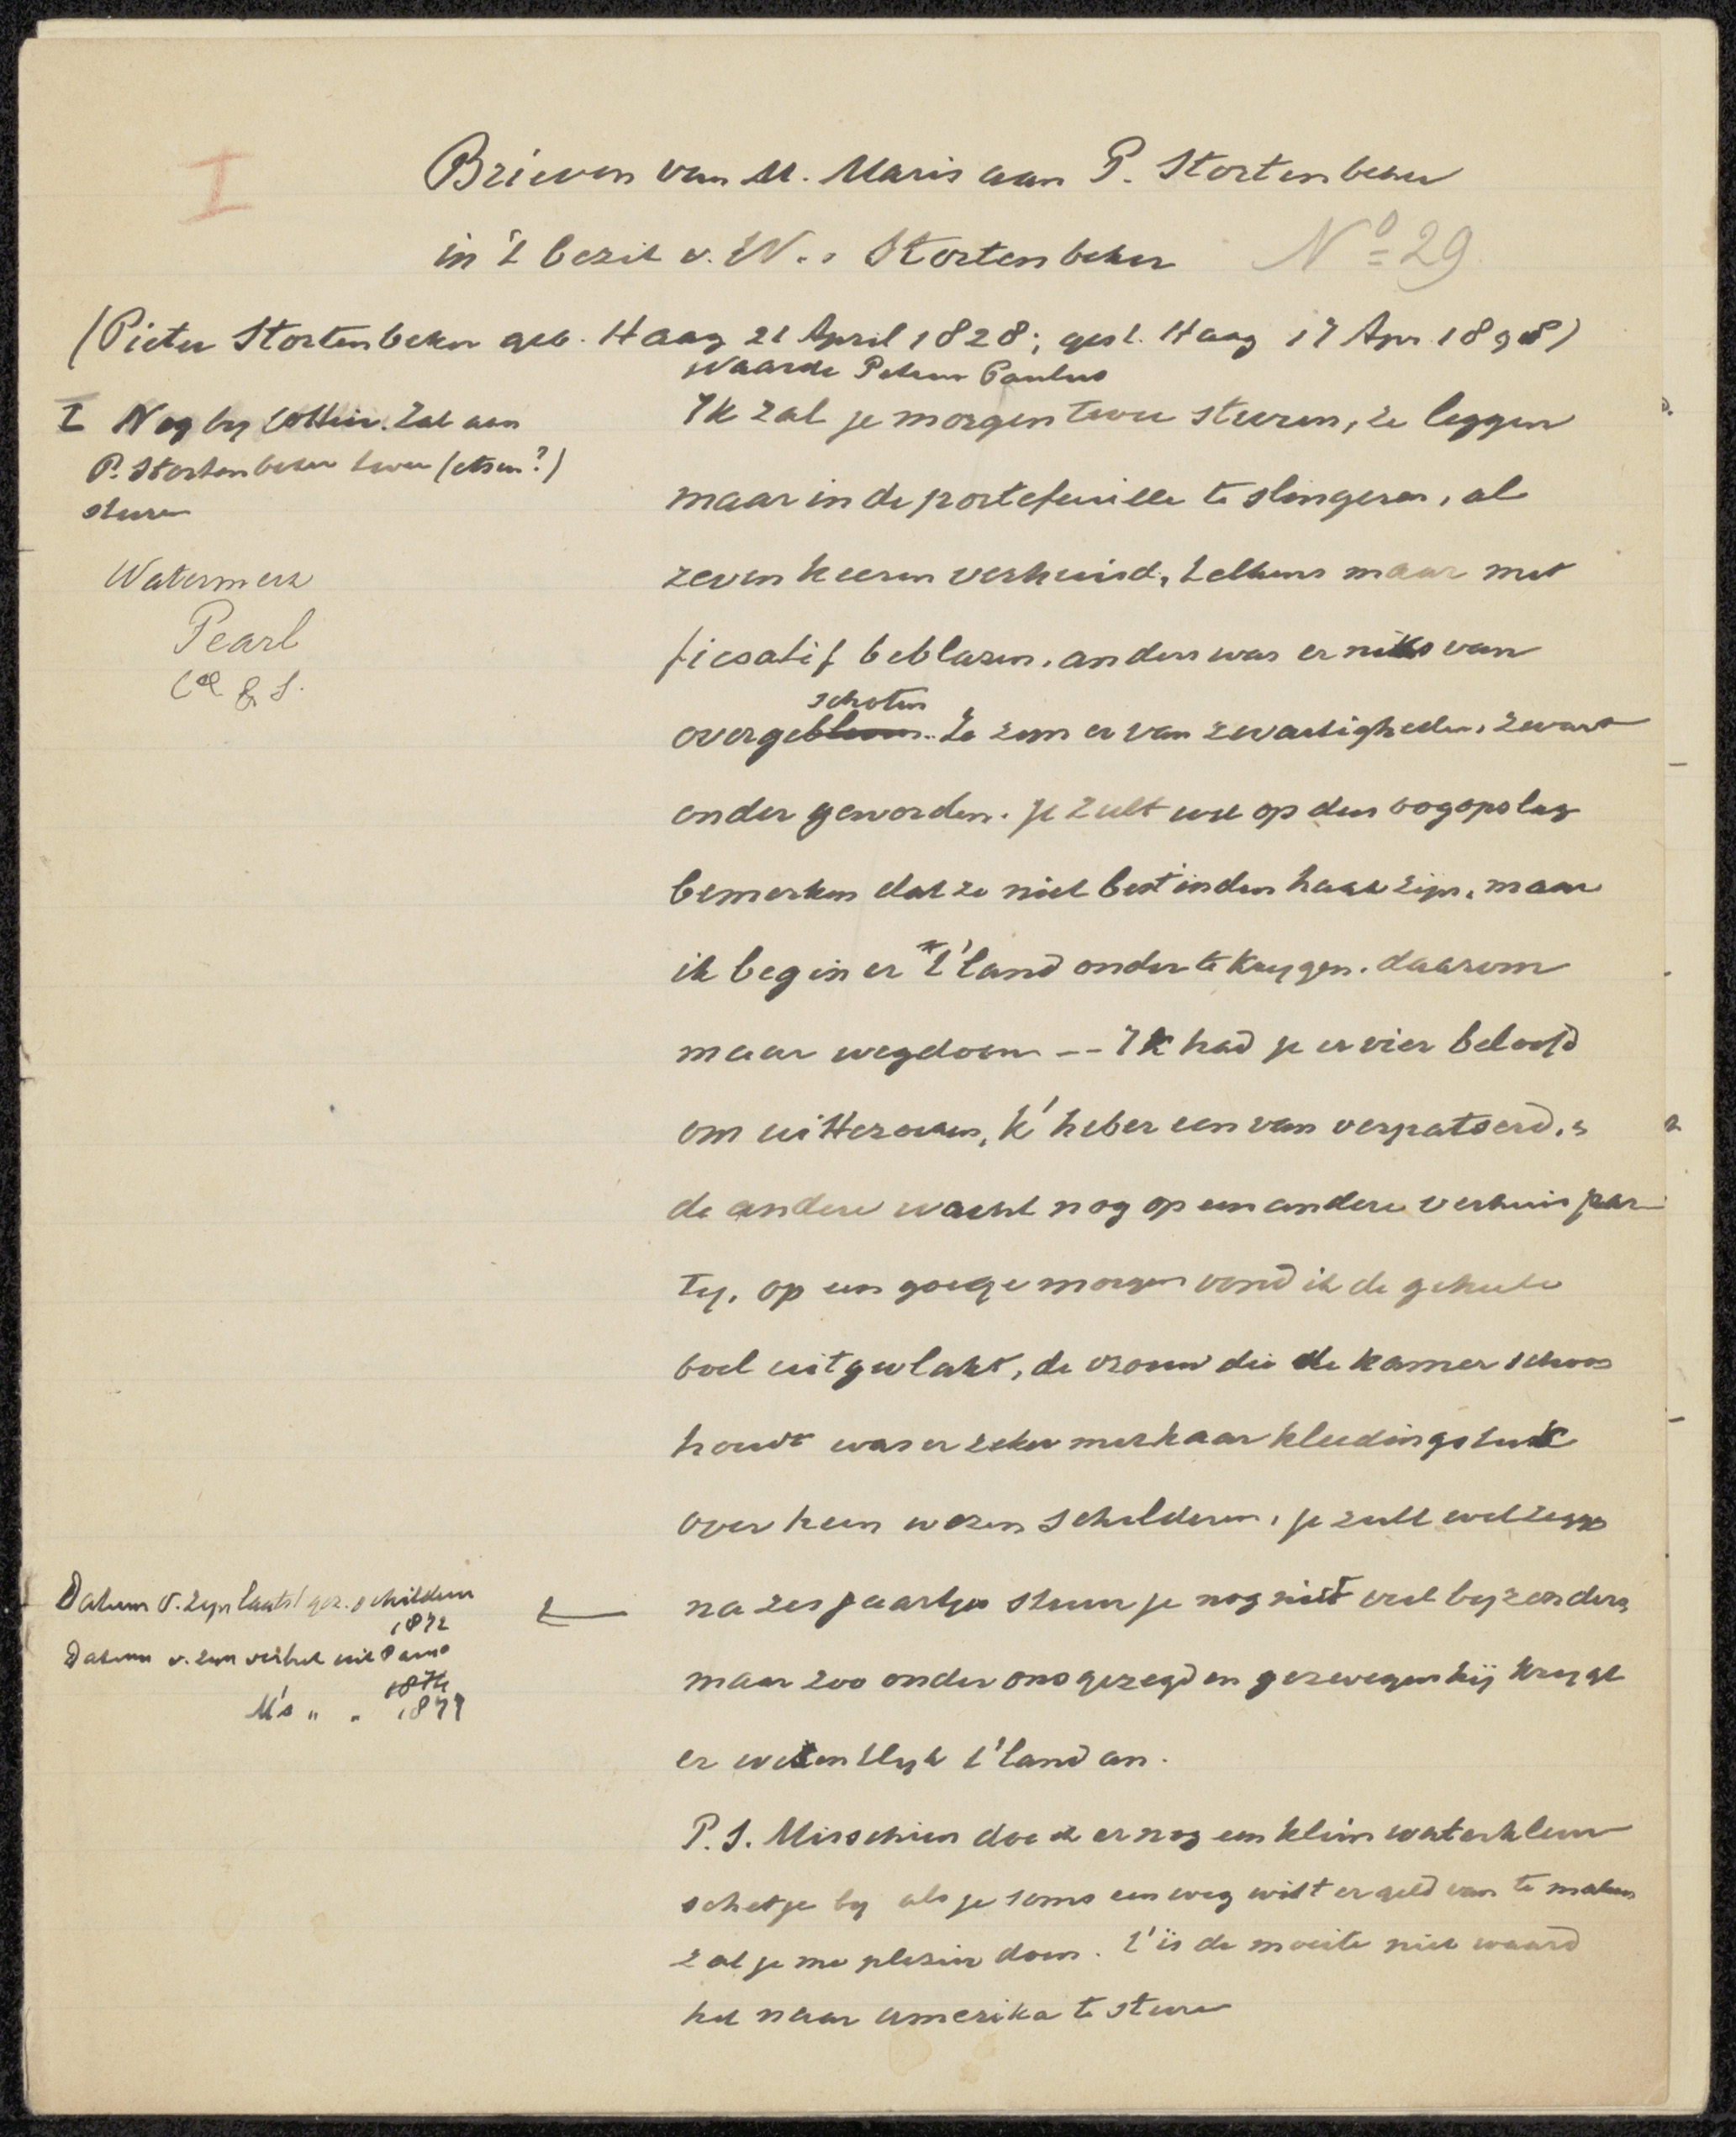 I
Brieven van M. Maris aan P. Stortenbeker
in 't bezit v. W. Stortenbeker No 29
(Pieter Stortenbeker geb. Haag 21 April 1828; gest. Haag 17 Apr. 1898)
Waarde Petrus Paulus
I Nog by Cottier. Zal aan
P. Stortenbeker twee (etsen?)
sturen
Watermerk
Pearl
Ik zal je morgen twee sturen, ze leggen
maar in de portefeuille te slingeren, al
zeven keeren verhuisd, telkens maar met
ficsatif beblazen, anders was er niks van
schoten
overgebleven. Ze zyn er van zwartigheden, zwart
onder geworden. je zult wel op den oogopslag
bemerken dat ze niet best in den haak zijn, maar
ik begin er t'land onder te krygen. daarom
maar wegdoen -- Ik had je er vier beloofd
om uittezoeken, k' heb er een van verpatserd,
de andere wacht nog op een andere verhuispar-
ty, op een goeje morgen vond ik de geheele
boel uitgevlakt, de vrouw die de kamer schoon
houdt was er zeker met haar kleedingstuk
over heen wezen schilderen, je zult wel zeggen
na zes jaartjes stuur je nog niet veel byzonders,
maar zoo onder ons gezegd en gezwegen hij krygt
er wezentlyk t'land an.
Datum v. zyn laatst gez. schilderen
1872
Datum v. zyn vertrek uit Parys
1874
M's " " 1877
P.S. Misschien doe ik er nog een klein waterkleur
schetje by als je soms een weg wist er geld van te maken
zal je me plezier doen. t'is de moeite niet waard
het naar amerika te sturen